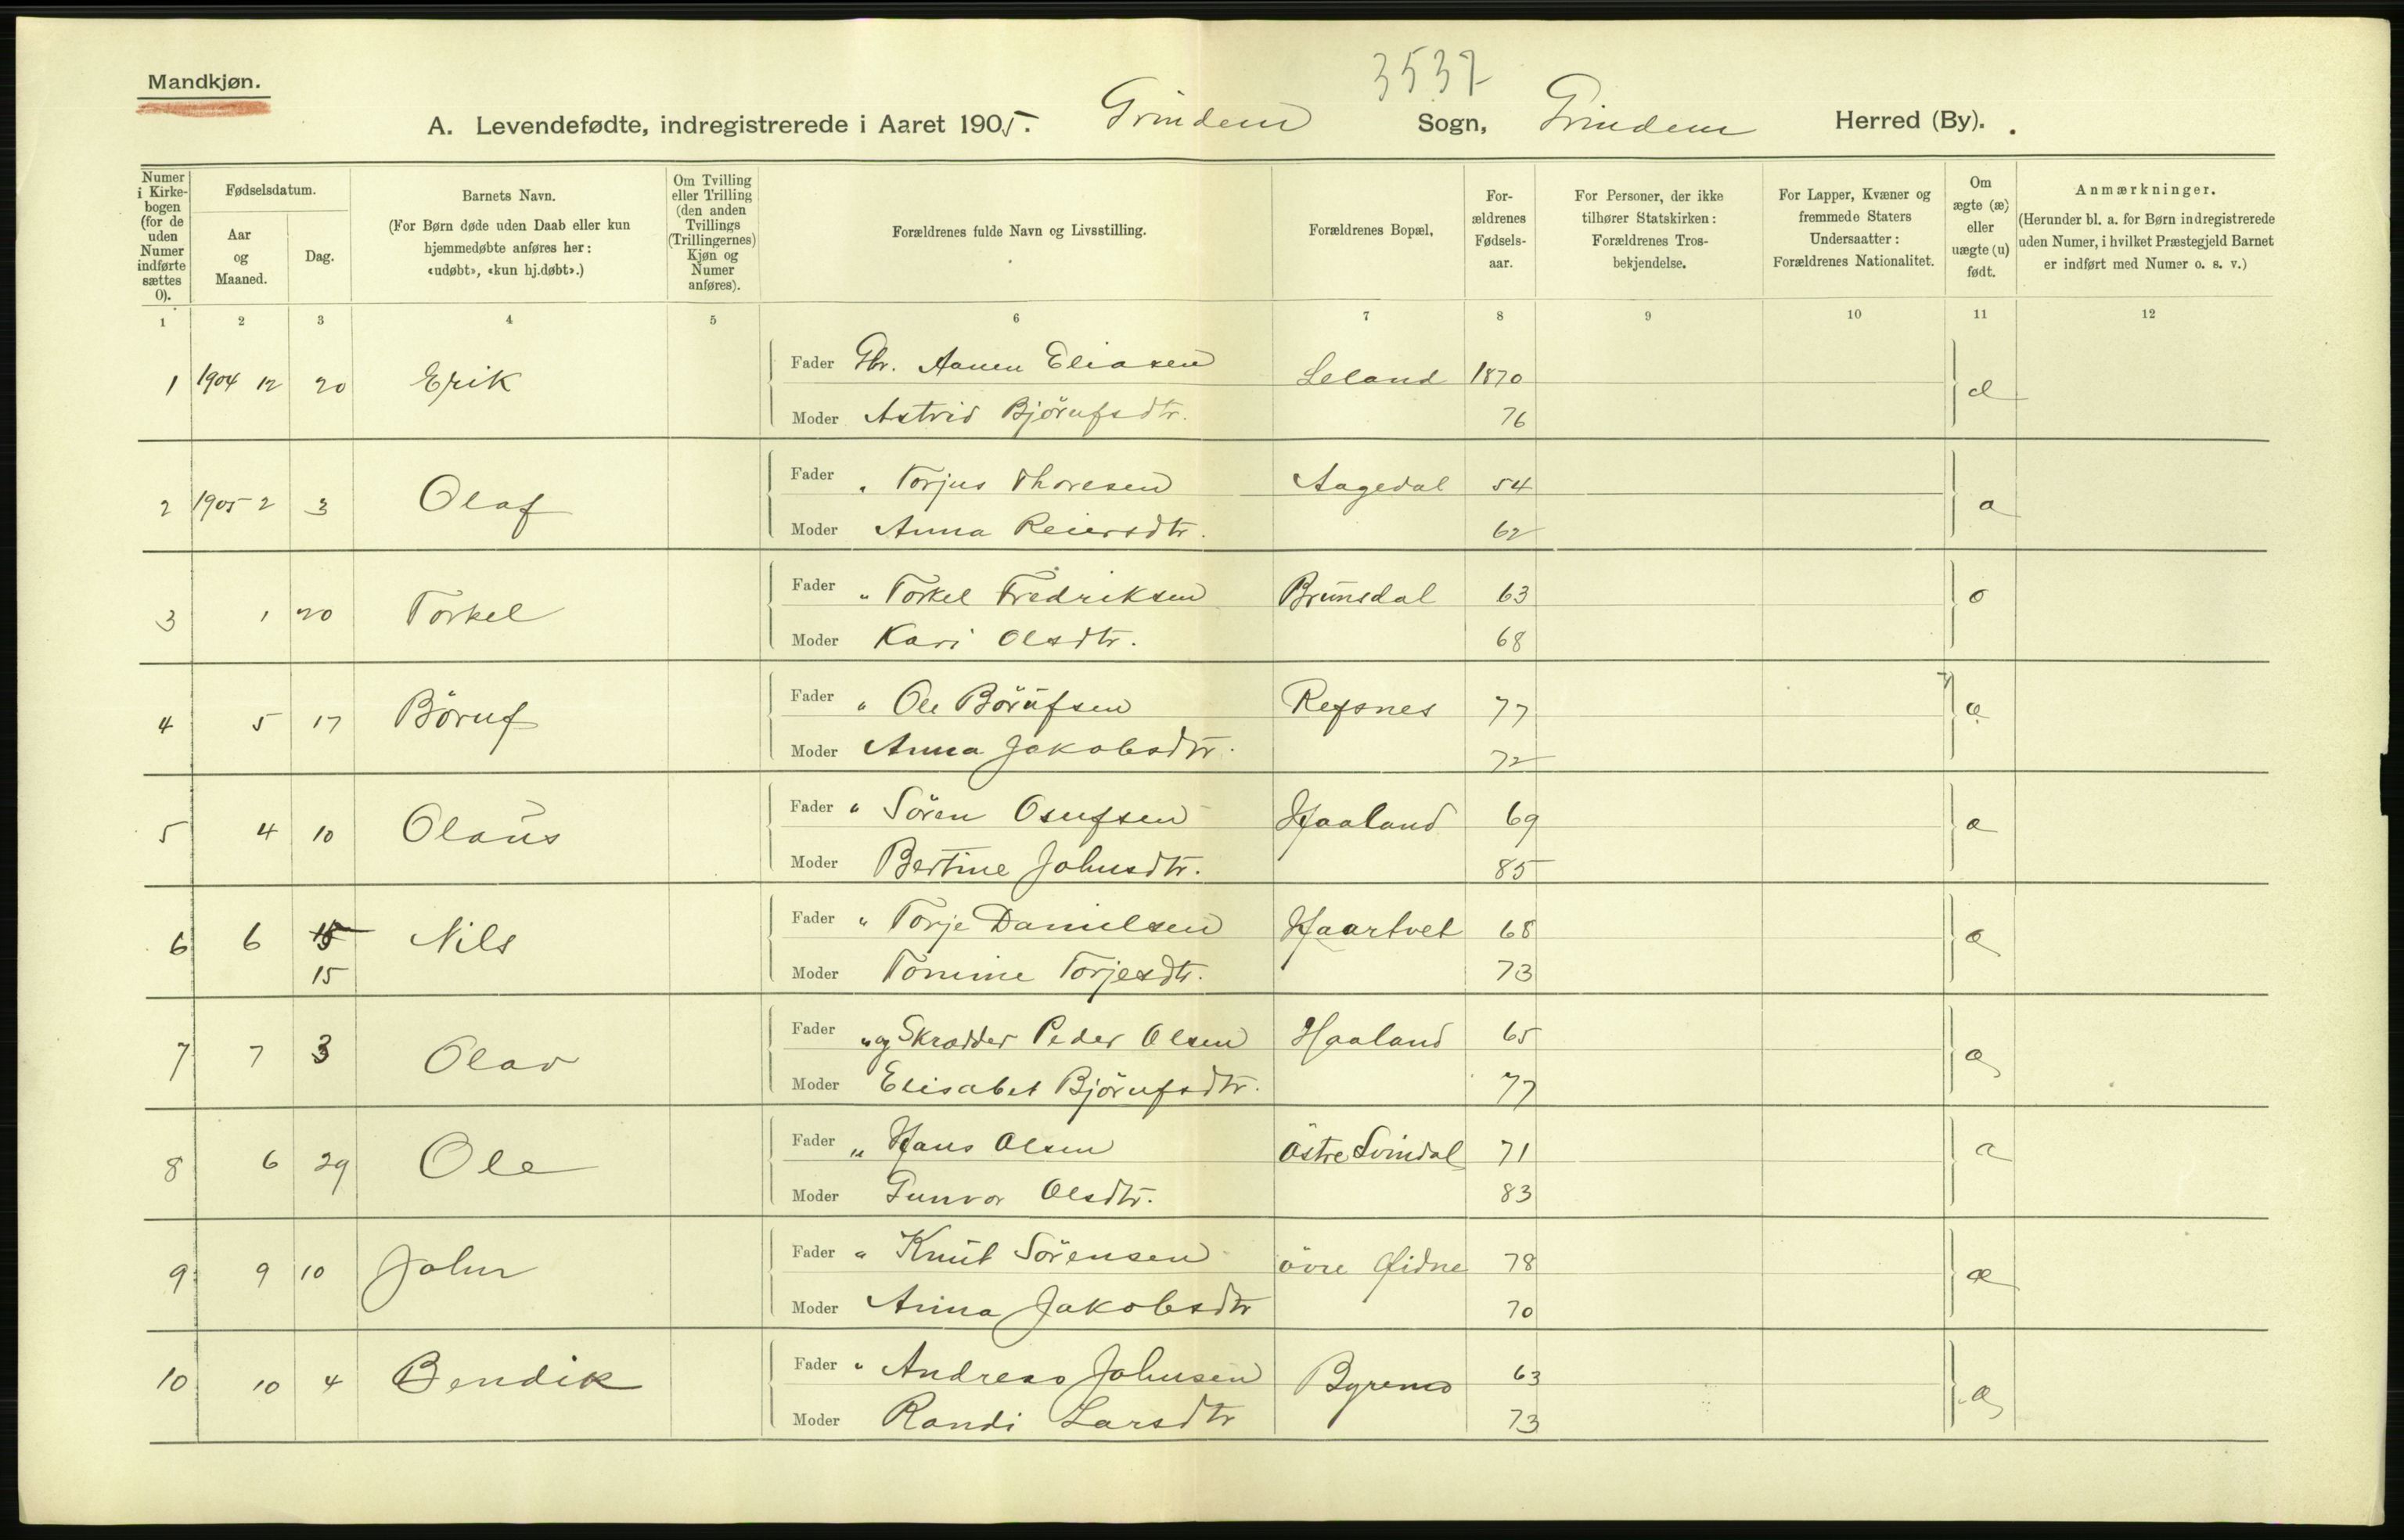 3537
Mandkjøn.
A. Levendefødte, indregistrerede i Aaret 1905. Grindem Sogn, Grindem Herred (By).
Numer i Kirkebogen (for de uden Numer indførte sættes 0).
Fødselsdatum.
Aar og Maaned.
Dag.
Barnets Navn.
(For Børn døde uden Daab eller kun hjemmedøbte anføres her: «udøbt», «kun hj.døbt».)
Om Tvilling eller Trilling (den anden Tvillings (Trillingernes) Kjøn og Numer anføres).
Forældrenes fulde Navn og Livsstilling.
Forældrenes Bopæl,
Forældrenes Fødselsaar.
For Personer, der ikke tilhører Statskirken: Forældrenes Trosbekjendelse.
For Lapper, Kvæner og fremmede Staters Undersaatter: Forældrenes Nationalitet.
Om ægte (æ) eller uægte (u) født.
Anmærkninger.
(Herunder bl. a. for Børn indregistrerede uden Numer, i hvilket Præstegjeld Barnet er indført med Numer o. s. v.)
1 2 3 4 5 6 7 8 9 10 11 12
1 1904 12 20 Erik Fader Gbr. Aanen Eliasen Leland 1870 æ
Moder Astrid Björufsdtr. 76
2 1905 2 3 Olaf Fader " Torjus Thoresen Aagedal 54 æ
Moder Anna Reiersdtr. 62
3 1 20 Torkel Fader " Torkel Fredriksen Brunsdal 63 æ
Moder Kari Olsdtr. 68
4 5 17 Böruf Fader " Ole Börufsen Refsnes 77 æ
Moder Anna Jakobsdtr. 72
5 4 10 Olaus Fader " Sören Osufsen Haaland 69 æ
Moder Bertine Johnsdtr. 85
6 6 15 Nils Fader " Torje Danielsen Haartvet 68 æ
15 Moder Tomine Torjesdtr. 73
7 7 3 Olav Fader " og Skrædder Peder Olsen Haaland 65 æ
Moder Elisabet Björufsdtr. 77
8 6 29 Ole Fader " Hans Olsen östre Svindal 71 æ
Moder Gunvor Olsdtr. 83
9 9 10 John Fader " Knut Sörensen övre Øidne 78 æ
Moder Anna Jakobsdtr 70
10 10 4 Bendik Fader " Andreas Johnsen Byremo 63 æ
Moder Randi Larsdtr 73